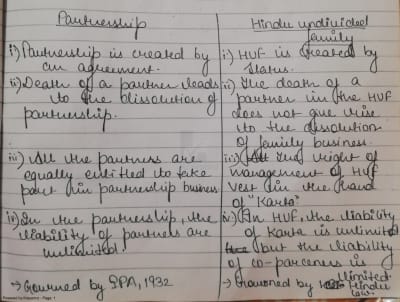 Partnership
i) Partnership is created by
an agreement.
ii) Death of a partner leads
to the dissolution of
partnership.
iii) All the partners are
equally entitled to take
part in partnership business
iv) In the partnership, the
liability of partners are
unlimited.
→ Governed by IPA, 1932
Hindu undivided
family
i) HUF is created by
status.
ii) The death of a
partner in the HUF
does not give rise
to the dissolution
of family business.
iii) All the right of
management of HUF
vest in the hand
of "Karta"
iv) In HUF, the liability
of Karta is unlimited
but the liability
of co-parceners is
limited.
→ Governed by Hindu
law.